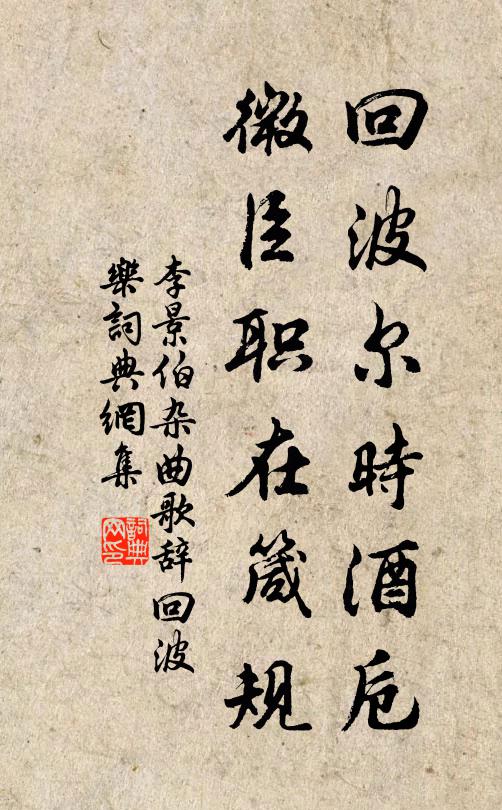 回波尔時酒卮
微臣职在箴规
李景伯杂曲歌辞回波
樂詞典網集
詞典网印